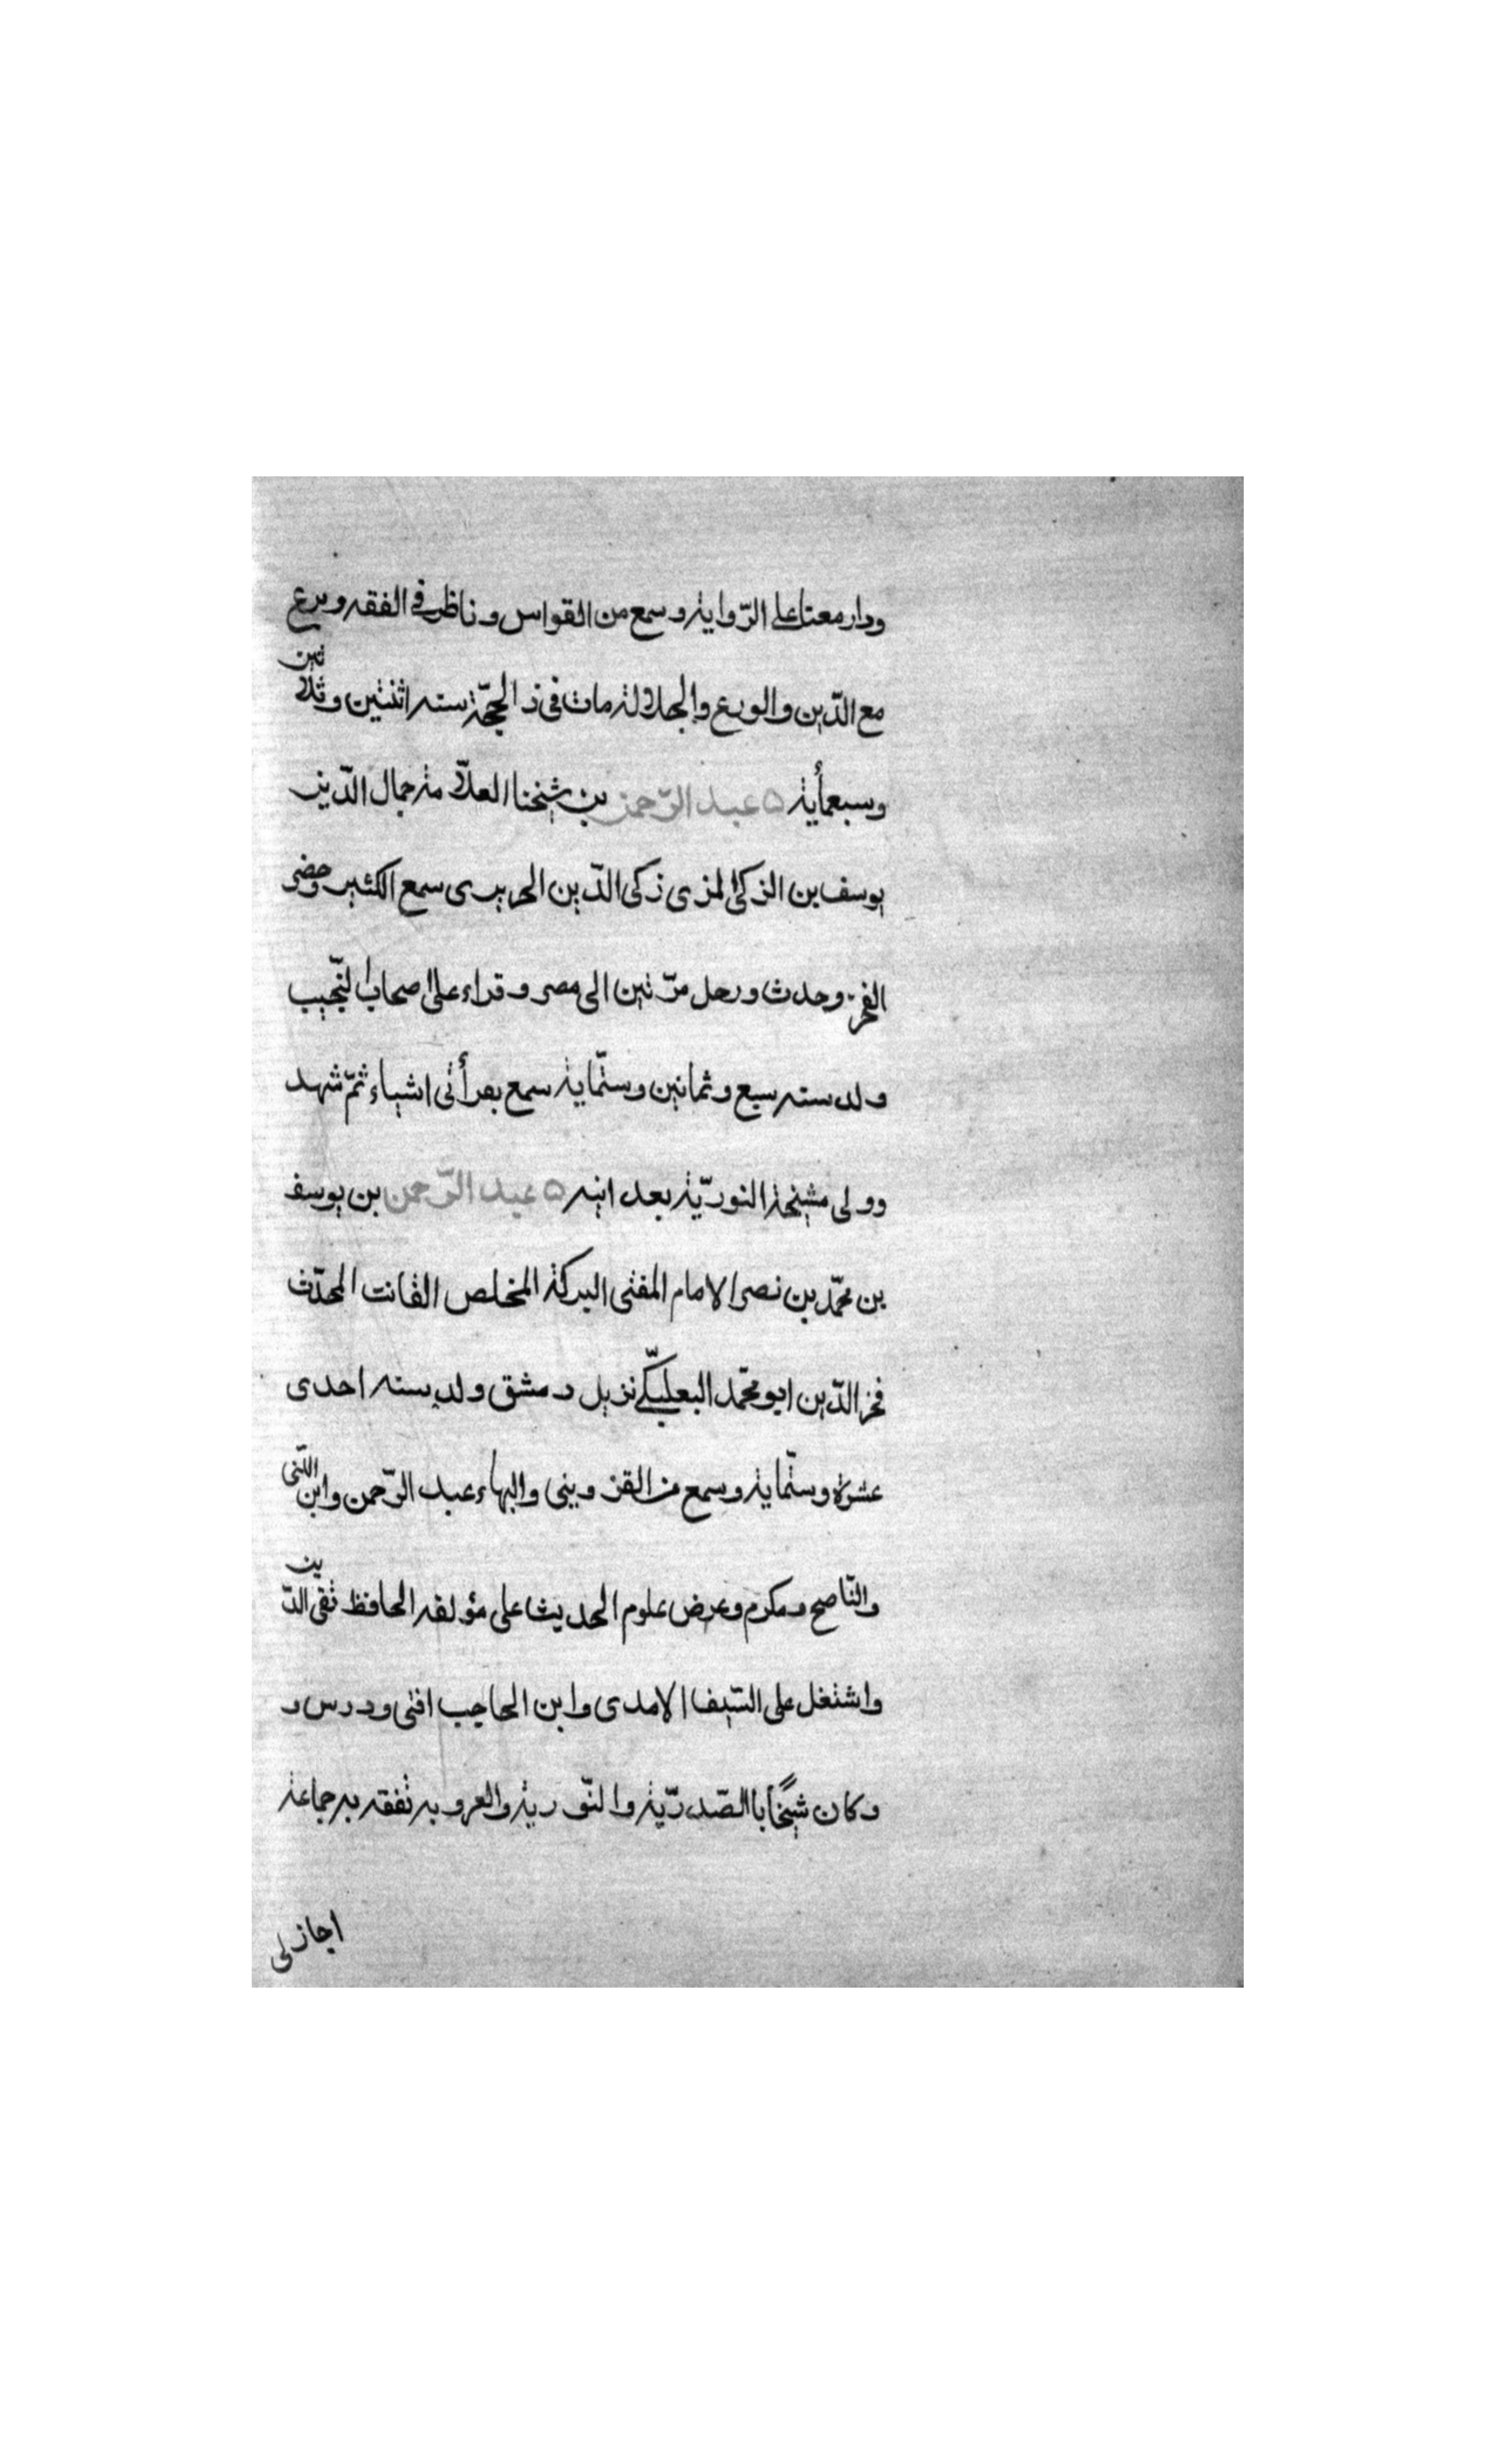 ودار معنا على الرّواية وسمع من القواس وناظر في الفقه وبرع
مع الدّين والورع والجلالة مات في ذ الحجّة سنه اثنتين وثلاثين
وسبعمأية ه عبد الرّحمن بن شيخنا العلاّمة جمال الدّين
يوسف بن الزكي المزى زكى الدّين الحريرى سمع الكثير وحضر
الفخر وحدث ورحل مرّتين الى مصر وقراء على اصحاب النّجيب
ولد سنه سبع وثمانين وستّماية سمع بقرأتى اشياء ثمّ شهد
وولى مشيخة النوريّة بعد ابيه ه عبد الرّحمن بن يوسف
بن محمّد بن نصر الامام المفتى البركة المخلص القانت المحدّث
فخر الدّين ابو محمّد البعلبكّي نزيل دمشق ولد سنه احدى
عشرة وستّماية وسمع من القزوينى والبهاء عبد الرّحمن وابن اللّتى
والنّاصح ومكرم وعرض علوم الحديث على مؤلفه الحافظ تقى الدّين
واشتغل على السّيف الامدى وابن الحاجب افتى ودرس و
وكان شيخًا بالصّدريّة والنّورية والعروبه تفقه به جماعة
اجاز لى